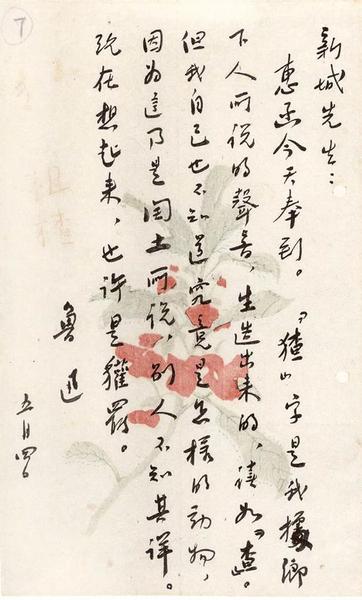 新城先生：
惠函今天奉到。「猹」字是我據鄉
下人所說的聲音，生造出來的，讀如「查」。
但我自己也不知道究竟是怎樣的動物，
因為這乃是閏土所說，別人不知其詳。
現在想起来，也許是獾罷。
魯迅
五月四日
7